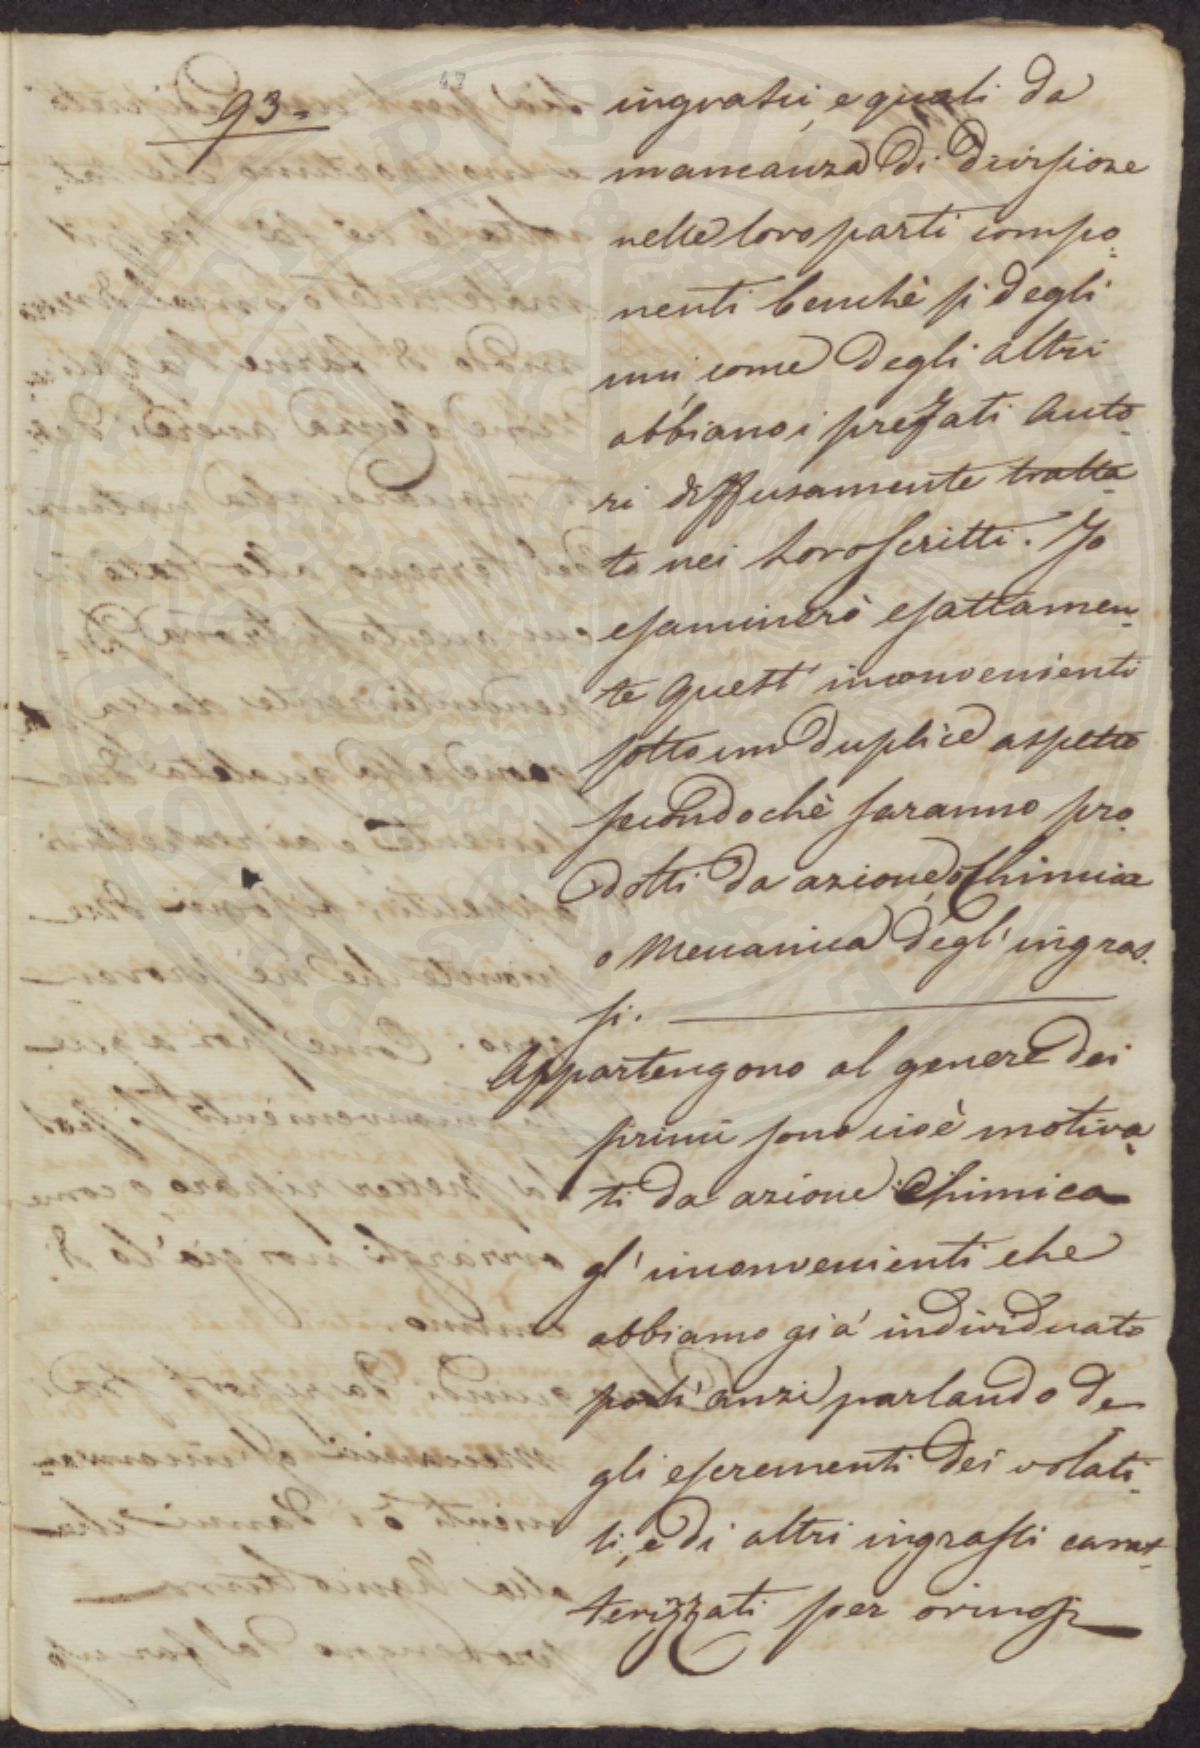 93.
ingrassi, e quali da
mancanza di divisione
nelle loro parti compo=
nenti benchè si degli
uni, come degli altri
abbiano i pregiati Auto=
ri diffusamente tratta=
to nei loro scritti. Io
esaminerò esattamen=
te quest' inconvenienti
sotto un duplice aspetto
secondochè saranno pro=
dotti da azione, o Chimica
o Mecanica degl' ingras=
si.
Appartengono al genere dei
primi sono cioè motiva=
ti da azione Chimica
gl' inconvenienti che
abbiamo già individuato
poch' anzi parlando de
gli escrementi dei volati=
li, e di altri ingrassi carat=
terizzati per orinosi